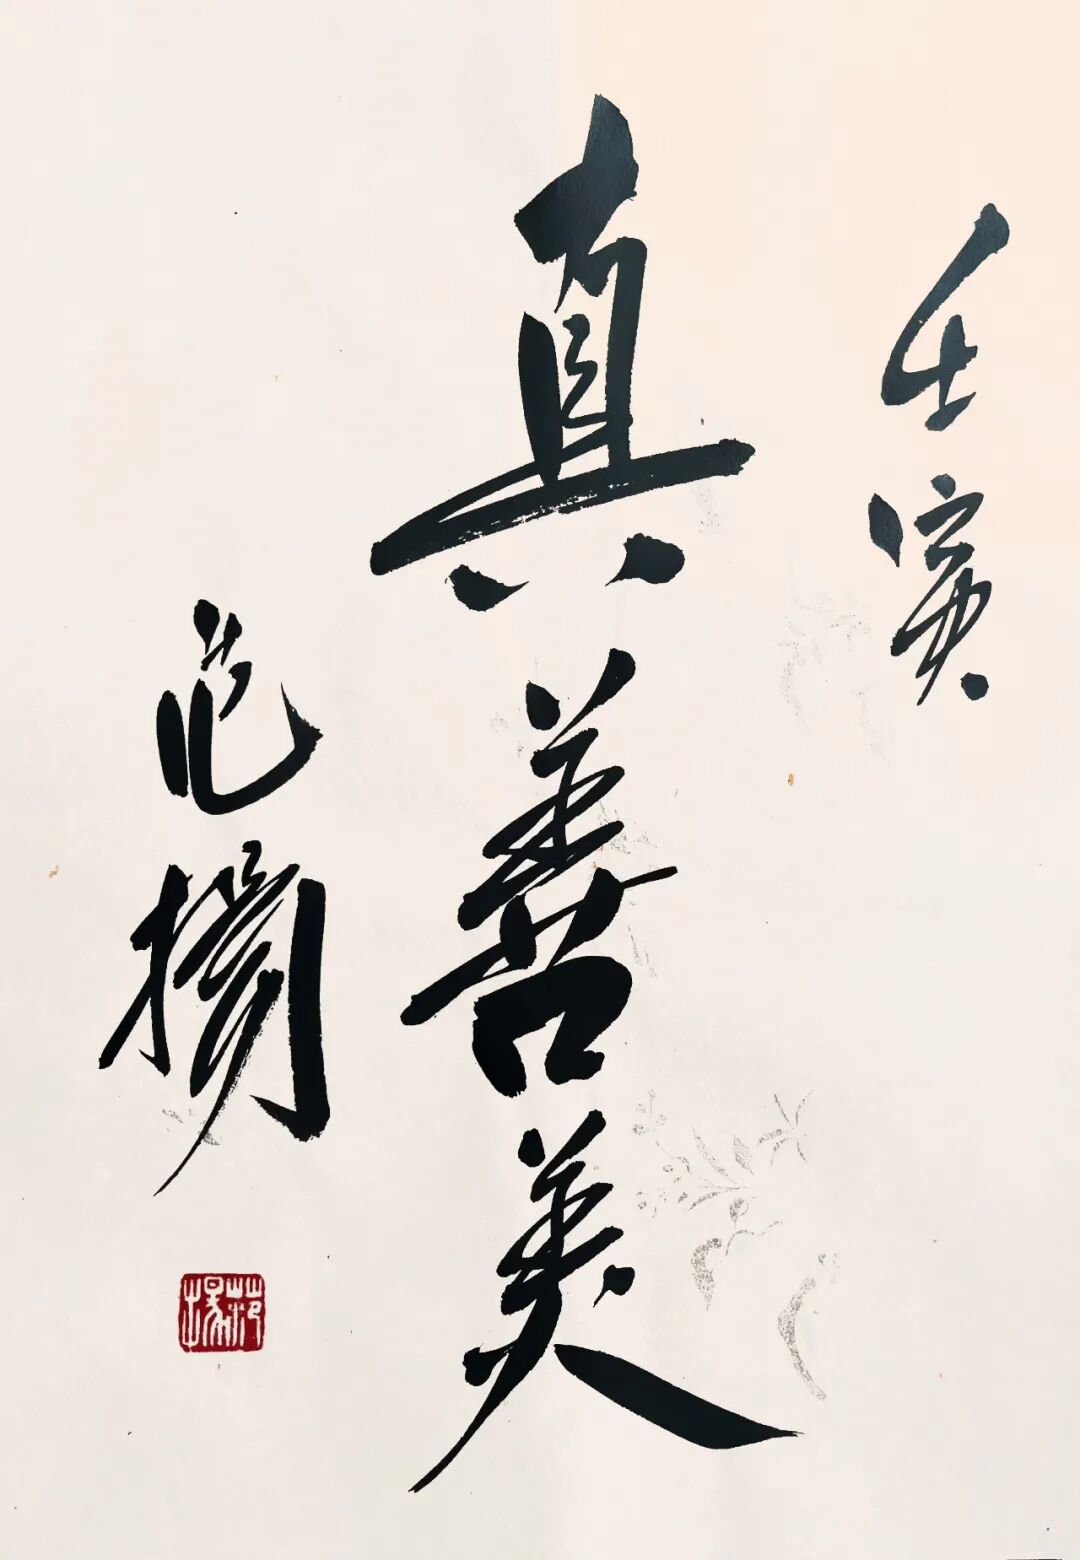 壬寅
真善美
范揚
范揚